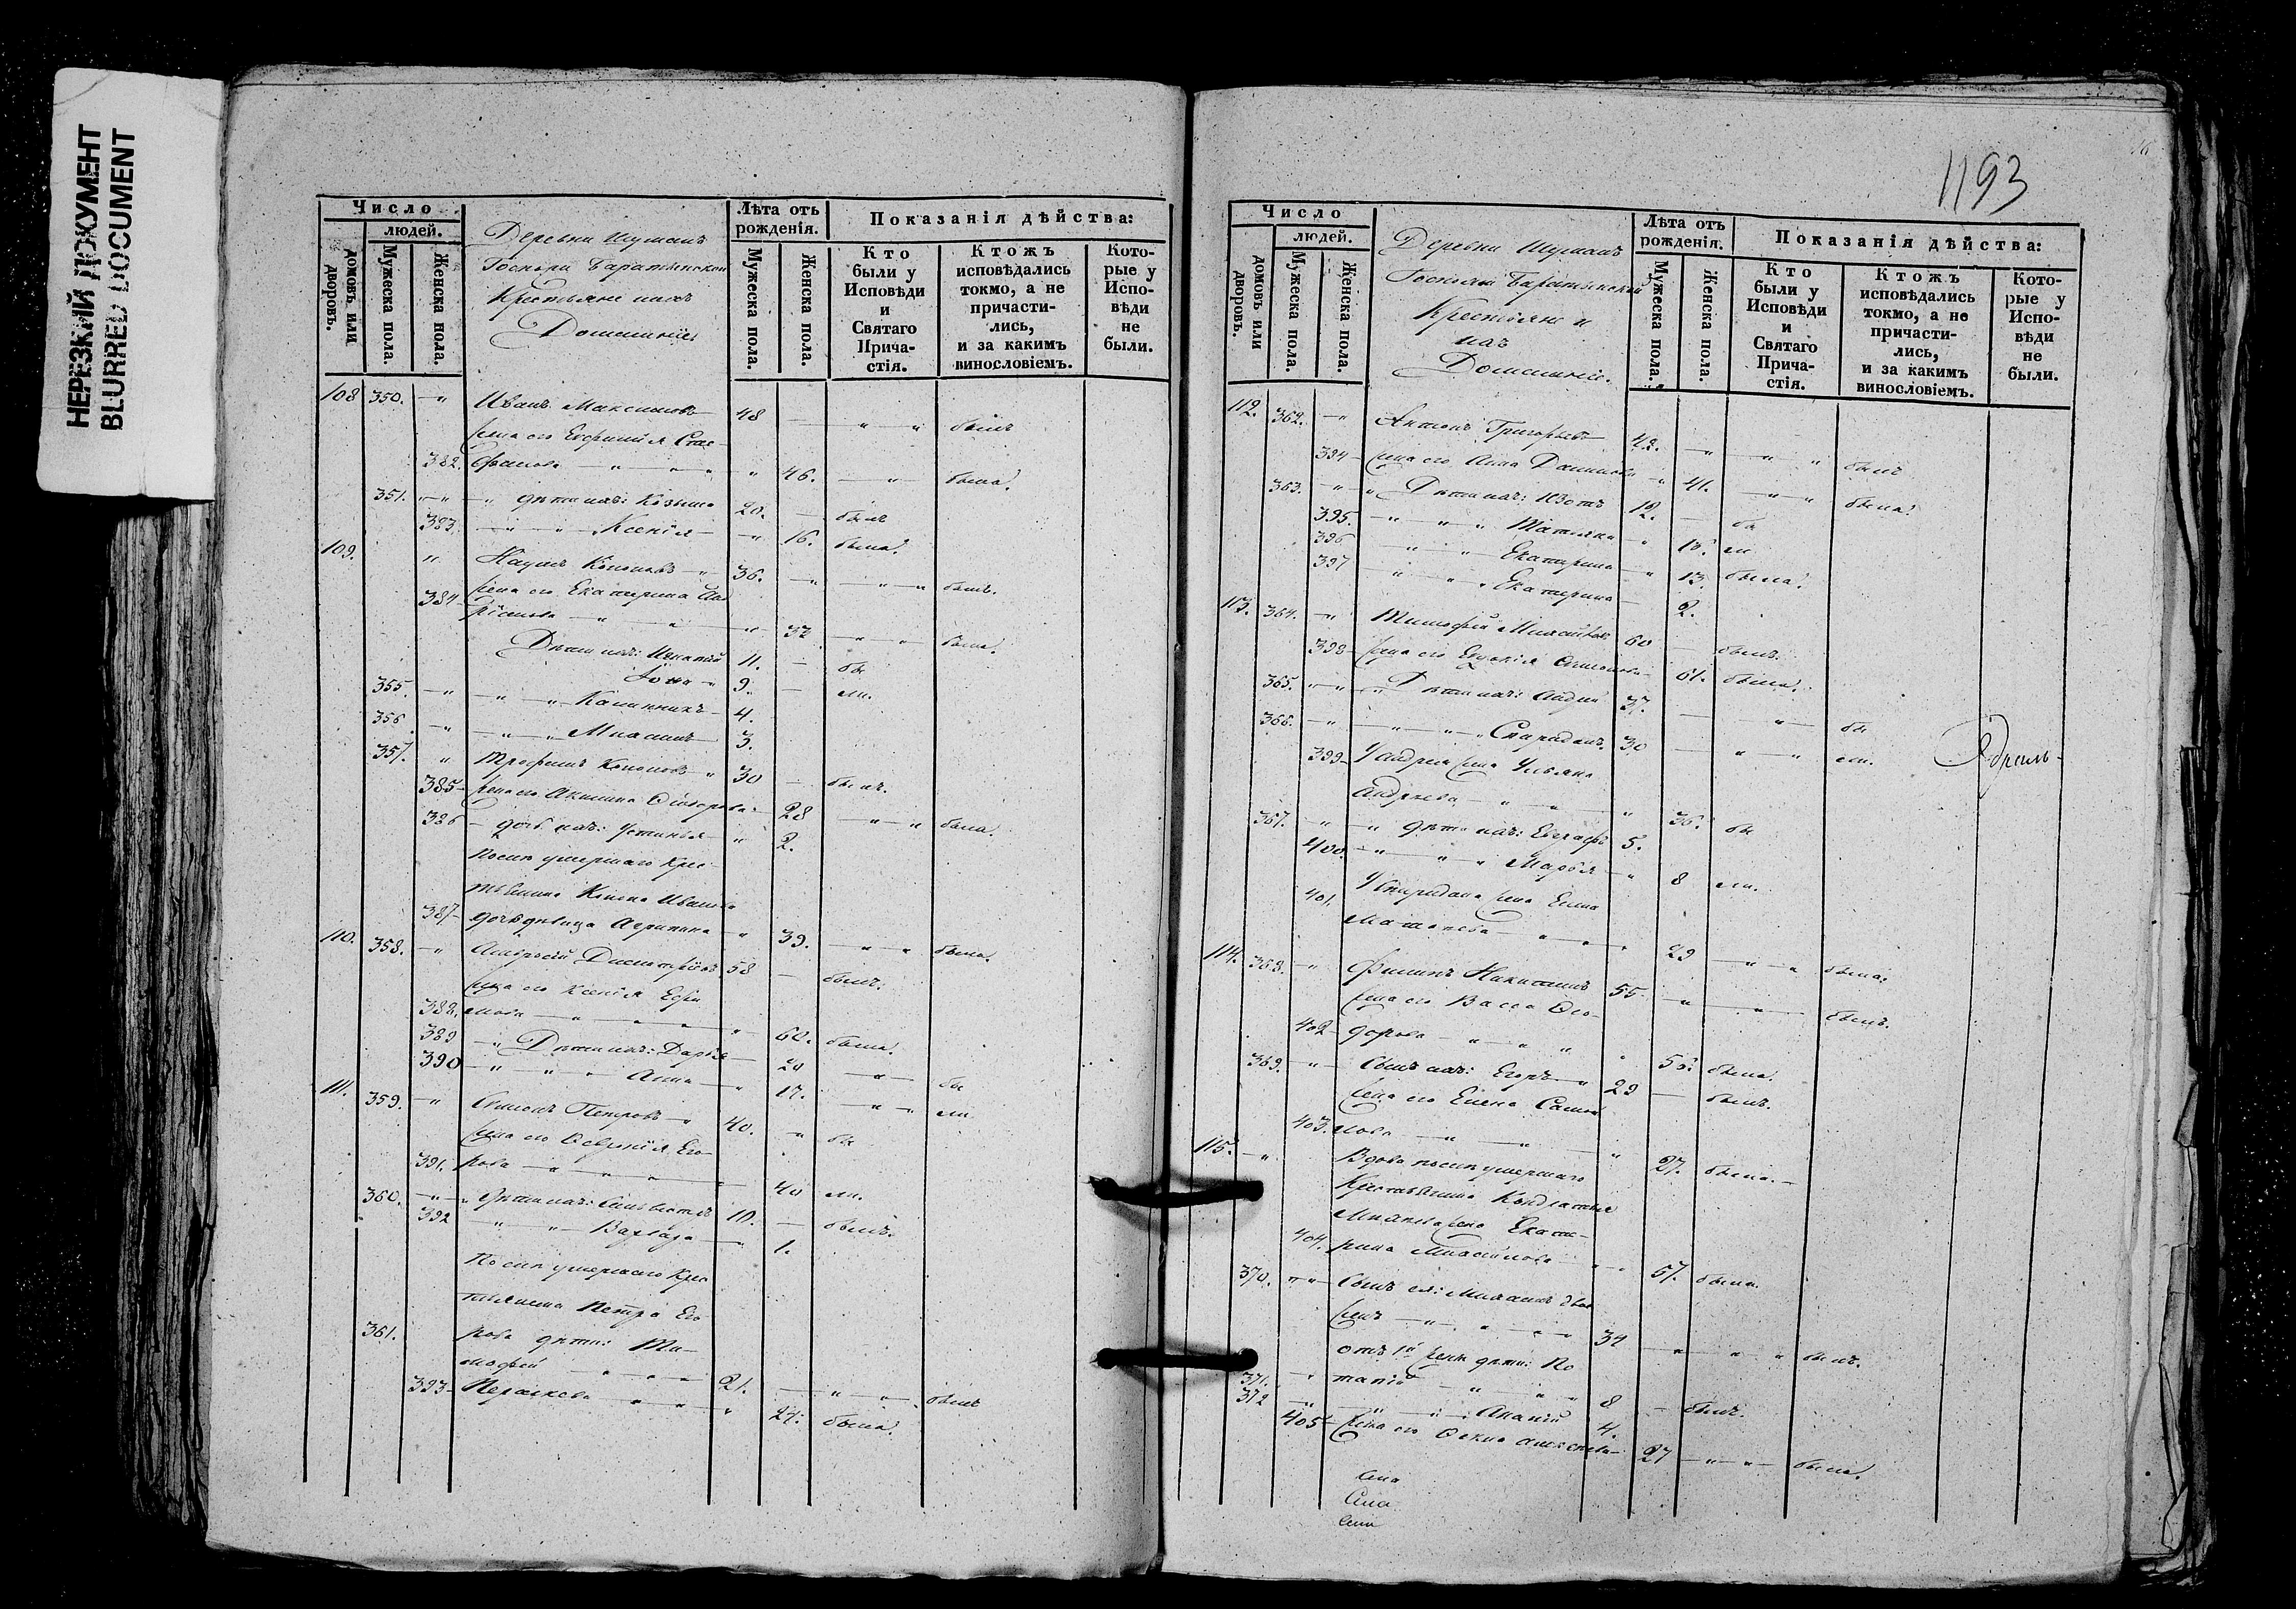 НЕРЕЗКИЙ ДОКУМЕНТ
BLURRED DOCUMENT
Число
людей.
домовъ или дворовъ.
Мужеска пола.
Женска пола.
Деревни Шуманъ
Госпожи Баратынской
Крестьяне и ихъ
Домашніе.
Лѣта отъ рожденія.
Мужеска пола.
Женска пола.
Показанія дѣйства:
Кто были у Исповѣди и Святаго Причастія.
Ктожъ исповѣдались токмо, а не причастились, и за какимъ винословіемъ.
Которые у Исповѣди не были.
108 350. Иванъ Максимовъ 48 былъ
жена его Евфимія Сте-
382. фанова 46. была.
351. дѣти ихъ: Козьма 20. былъ
383. Ксенія 16. была.
109. Наумъ Кононовъ 36. былъ.
жена его Екатерина
384 32 была.
Дѣти ихъ: Игнатій 11. бы
Іона 9. ли.
355. Калинникъ 4.
356 Михаилъ 3.
357. Трофимъ Кононовъ 30 былъ.
385 жена его Акилина Ѳедорова 28 была.
386 дочь ихъ: Устинья 2.
Послѣ умершаго Крес-
тьянина Конона Иванова
387 дочь дѣвица Агрипина 39. была.
110. 358. Амвросій 58 былъ.
жена его Ксенія Ефи
388. мова 60. была.
389 Дѣти ихъ: Дарья 20 бы
390 Анна 17. ли
111. 359. Симонъ Петровъ 40. бы
жена его Евфимія Его-
391. рова 40 ли.
360. Дѣти ихъ: Сильвестръ 10. былъ.
392 Варвара 1.
Послѣ умершаго Крес
тьянина Петра Его
рова дѣти: Ти-
361. мофей 21. былъ
393 Пелагея 24. была.
1193
Число
людей.
домовъ или дворовъ.
Мужеска пола.
Женска пола.
Деревни Шуманъ
Госпожи Баратынской
Крестьяне и
ихъ
Домашніе.
Лѣта отъ рожденія.
Мужеска пола.
Женска пола.
Показанія дѣйства:
Кто были у Исповѣди и Святаго Причастія.
Ктожъ исповѣдались токмо, а не причастились, и за какимъ винословіемъ.
Которые у Исповѣди не были.
112. 362. Антонъ Григорьевъ 42. былъ
394 жена его Анна Данилова 41. была.
363. Дѣти ихъ: Изотъ 12. бы
395. Татьяна 18. ли
396 Екатерина 13. была.
397 Екатерина 2.
113. 364. Тимофей Михайловъ 60 былъ.
398 жена его Евдокія Симонова 61. была.
365. Дѣти ихъ: Андрей 37. бы
366. Спиридонъ 30 ли.
399 У Андрея жена Ульяна
Андреева 36. бы
367. дѣти ихъ: Евграфъ 5.
400. Марья 8 ли.
401. У Спиридона жена Елена
29 была.
114. 368. Филипъ Никитинъ 55. былъ.
жена его Васса Ѳео-
402 дорова 56. была.
369. Сынъ ихъ: Егоръ 29 былъ.
жена его Елена Самой
403. лова 27. была.
115. Вдова послѣ умершаго
Крестьянина Кондратья
жена Екате-
404. рина Михайлова 57. была.
370. Сынъ ея: Михаилъ
34 былъ.
отъ 1й жены дѣти: По
371. тапій 8 былъ.
372 Ананій 4.
405 жена его Ѳекла 27 была.
жена
жена
жена